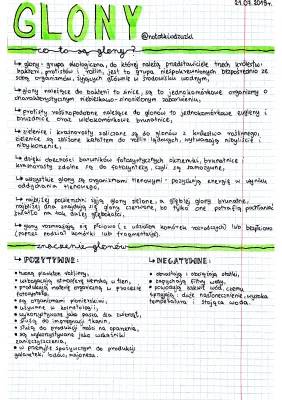 21.09.2019r.
GLONY
@notatkiodzuzki
co to są glony?
↳ glony - grupa ekologiczna, do której należą przedstawiciele trzech królestw:
bakterii, protistów i roślin, jest to grupa niespokrewnionych bezpośrednio ze
sobą organizmów, żyjących głównie w środowisku wodnym.
↳ glony należące do bakterii to sinice, są to jednokomórkowe organizmy o
charakterystycznym niebiesko-zielonym zabarwieniu,
↳ protisty roślinopodobne należące do glonów to jednokomórkowe eugleny i
bruzdnice oraz wielokomórkowe brunatnice,
↳ zielenice i krasnorosty zaliczane są do glonów z królestwa roślinnego,
↳ dzięki obecności barwników fotosyntetycznych okrzemki, brunatnice
krasnorosty zdolne są do fotosyntezy, czyli są samożywne,
↳ wszystkie glony są organizmami tlenowymi - pozyskują energię w wyniku
oddychania tlenowego,
↳ najbliżej powierzchni żyją glony zielone, a głębiej glony brunatne,
najgłębiej żyją glony czerwone, bo tylko one potrafią pochłaniać
światło na tak dużej głębokości,
↳ glony rozmnażają się płciowo (z udziałem komórek rozrodczych) lub bezpłciowo
(poprzez podział komórki lub fragmentację).
znaczenie glonów
↳ POZYTYWNE:
• tworzą plankton roślinny,
• wzbogacają atmosferę ziemską w tlen,
• produkują materię organiczną w procesie
fotosyntezy,
• są organizmami pionierskimi,
• używane w kosmetologii,
• wykorzystywane jako pasza dla zwierząt,
• służą do impregnacji tkanin,
• służą do produkcji
• są wykorzystywane jako wskaźniki
zanieczyszczenia,
• w przemyśle spożywczym do produkcji
galaretek, budyni, majonezu.
↳ NEGATYWNE:
• obrastają i obciążają statki,
• zapychają filtry wody,
• powodują zakwit wód, czemu
sprzyjają: duże nasłonecznienie, wysoka
temperatura i stojąca woda.